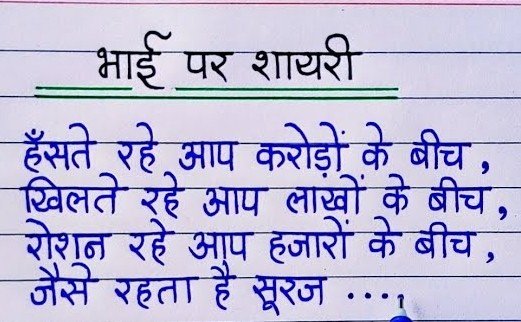 भाई पर शायरी
हँसते रहे आप करोड़ों के बीच,
खिलते रहे आप लाखों के बीच,
रोशन रहे आप हजारों के बीच,
जैसे रहता है सूरज ....